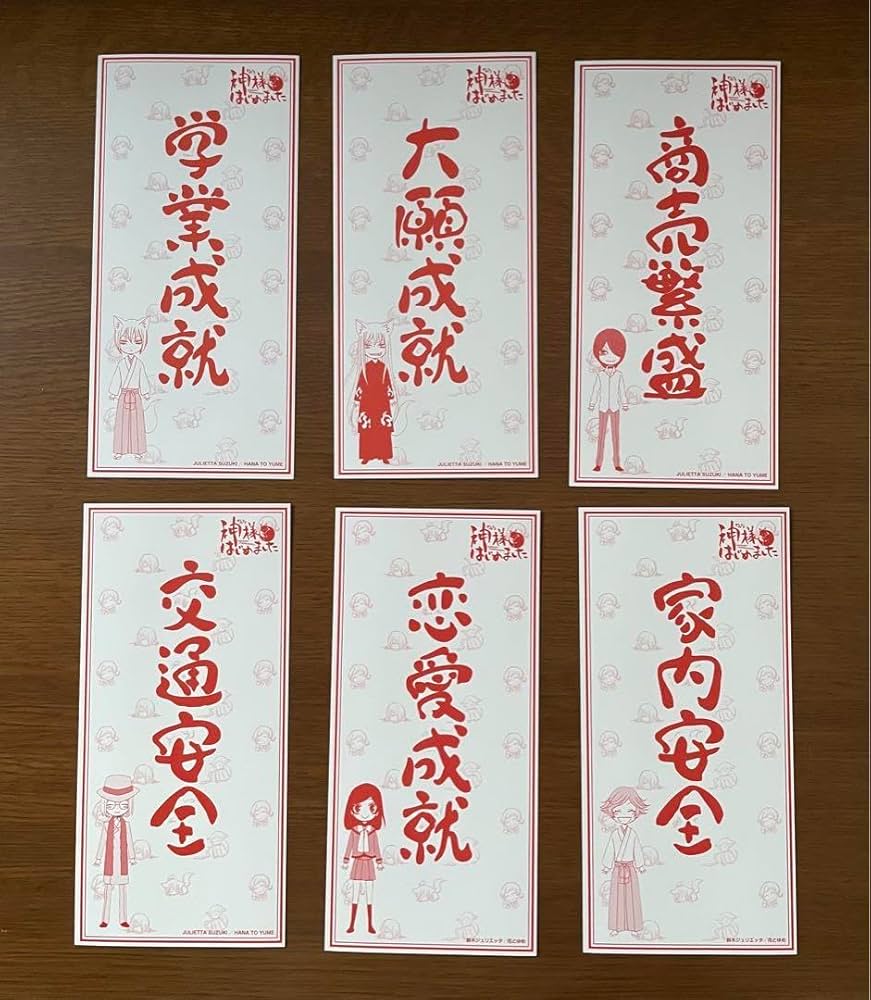 神様
はじめました
学業成就
JULIETTA SUZUKI／HANA TO YUME
神様
はじめました
大願成就
JULIETTA SUZUKI／HANA TO YUME
神様
はじめました
商売繁盛
JULIETTA SUZUKI／HANA TO YUME
神様
はじめました
交通安全
JULIETTA SUZUKI／HANA TO YUME
神様
はじめました
恋愛成就
鈴木ジュリエッタ／花とゆめ
神様
はじめました
家内安全
鈴木ジュリエッタ／花とゆめ